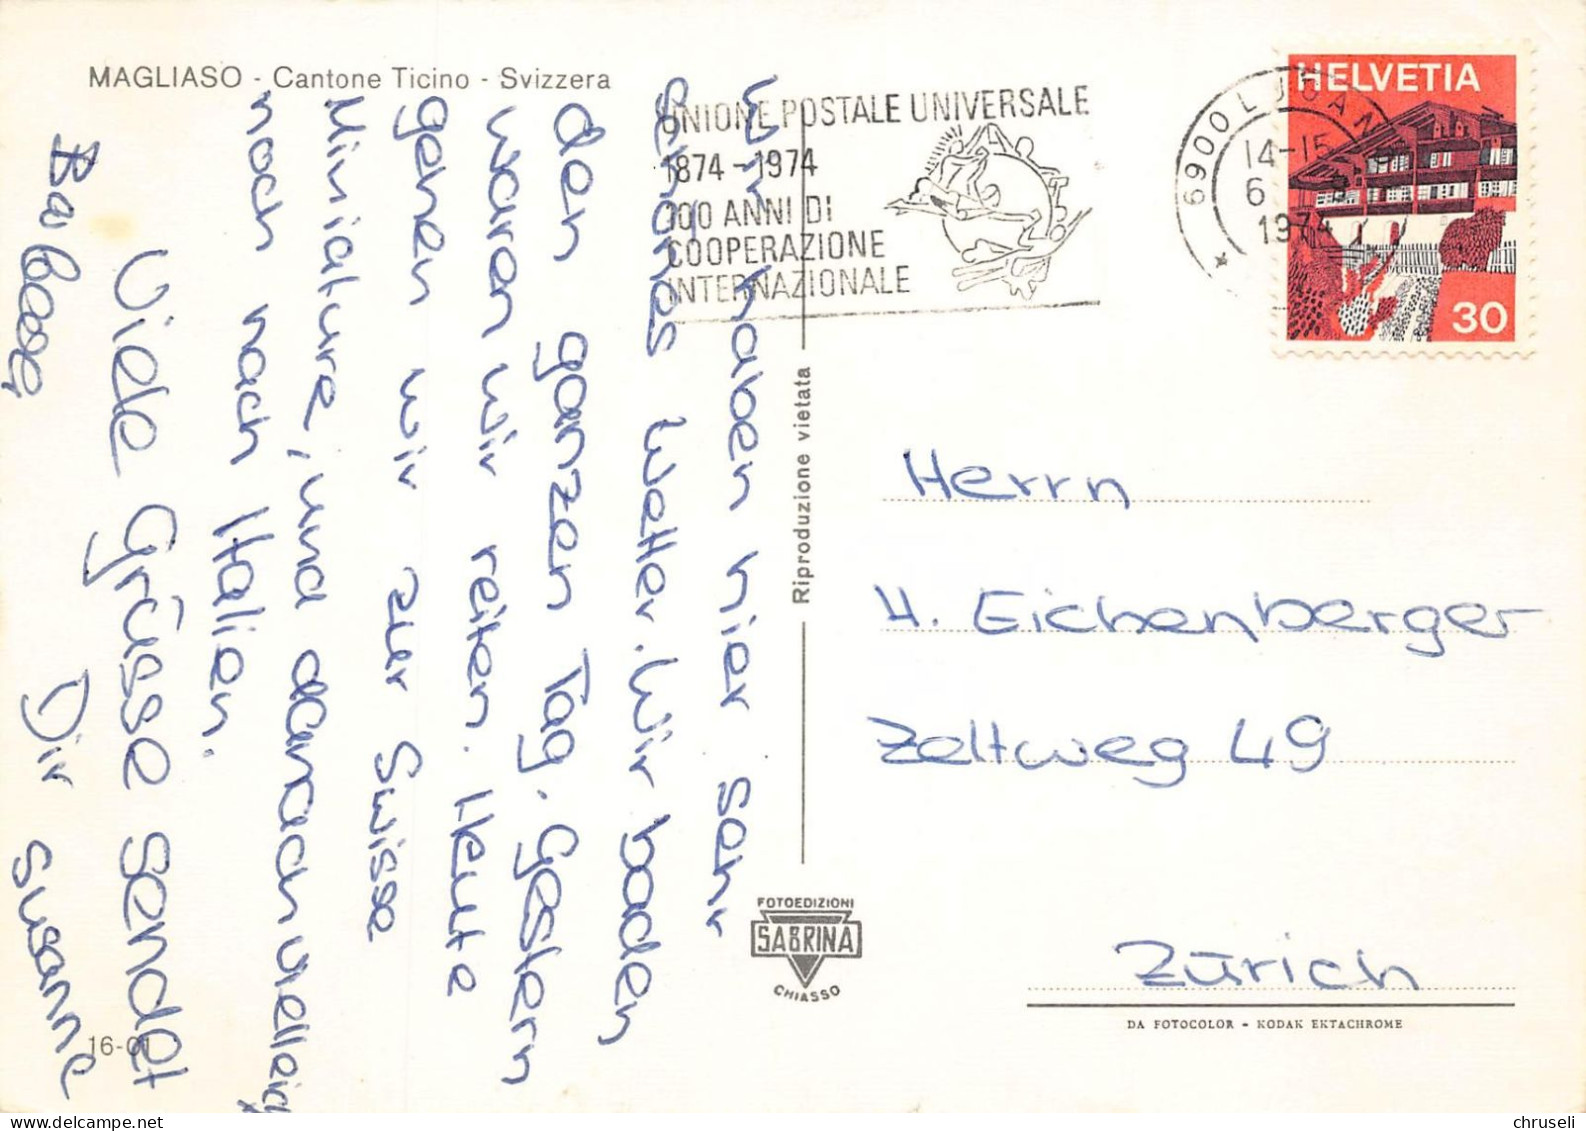 MAGLIASO - Cantone Ticino - Svizzera
UNIONE POSTALE UNIVERSALE
1874-1974
100 ANNI DI
COOPERAZIONE
INTERNAZIONALE
6900 LUGANO
14-15
6 9
1974
HELVETIA
30
Wir haben hier sehr
schönes Wetter. Wir baden
den ganzen Tag. Gestern
waren wir reiten. Heute
gehen wir zur Swisse
Miniature, und danach vielleicht
noch nach Italien.
Viele Grüsse sendet
Dir Susanne
Riproduzione vietata
Herrn
H. Eichenberger
Zeltweg 49
Zürich
FOTOEDIZIONI
SABRINA
CHIASSO
DA FOTOCOLOR - KODAK EKTACHROME
16-01
chruseli